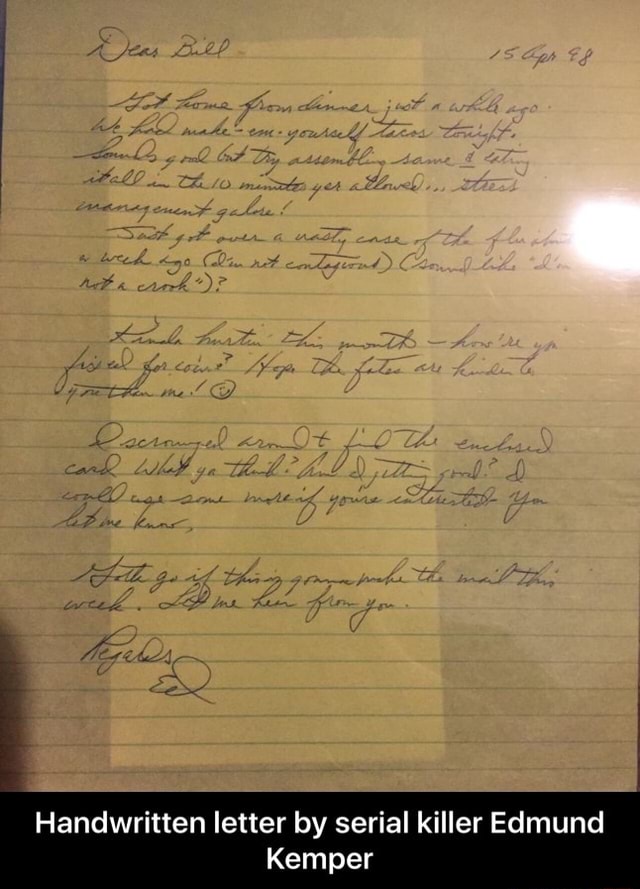 Dear Bill
15 Apr 98
Got home from dinner just a while ago.
We had make-em-yourself tacos tonight.
Sounds good but try assembling same & eating
it all in the 10 minutes yer allowed... stress
management galore!
Just got over a nasty case of the flu about
a week ago (I'm not contagious) (sound like "I'm
not a crook")?
Kinda hurtin' this month - how're you
fixed for coins? Hope the fates are kinder to
you than me!
I scrounged around to find the enclosed
card. What ya think? Am I getting good? I
could use some more if you're interested - You
let me know,
Gotta go if this is gonna make the mail this
week. Let me hear from you.
Regards,
Ed
Handwritten letter by serial killer Edmund
Kemper